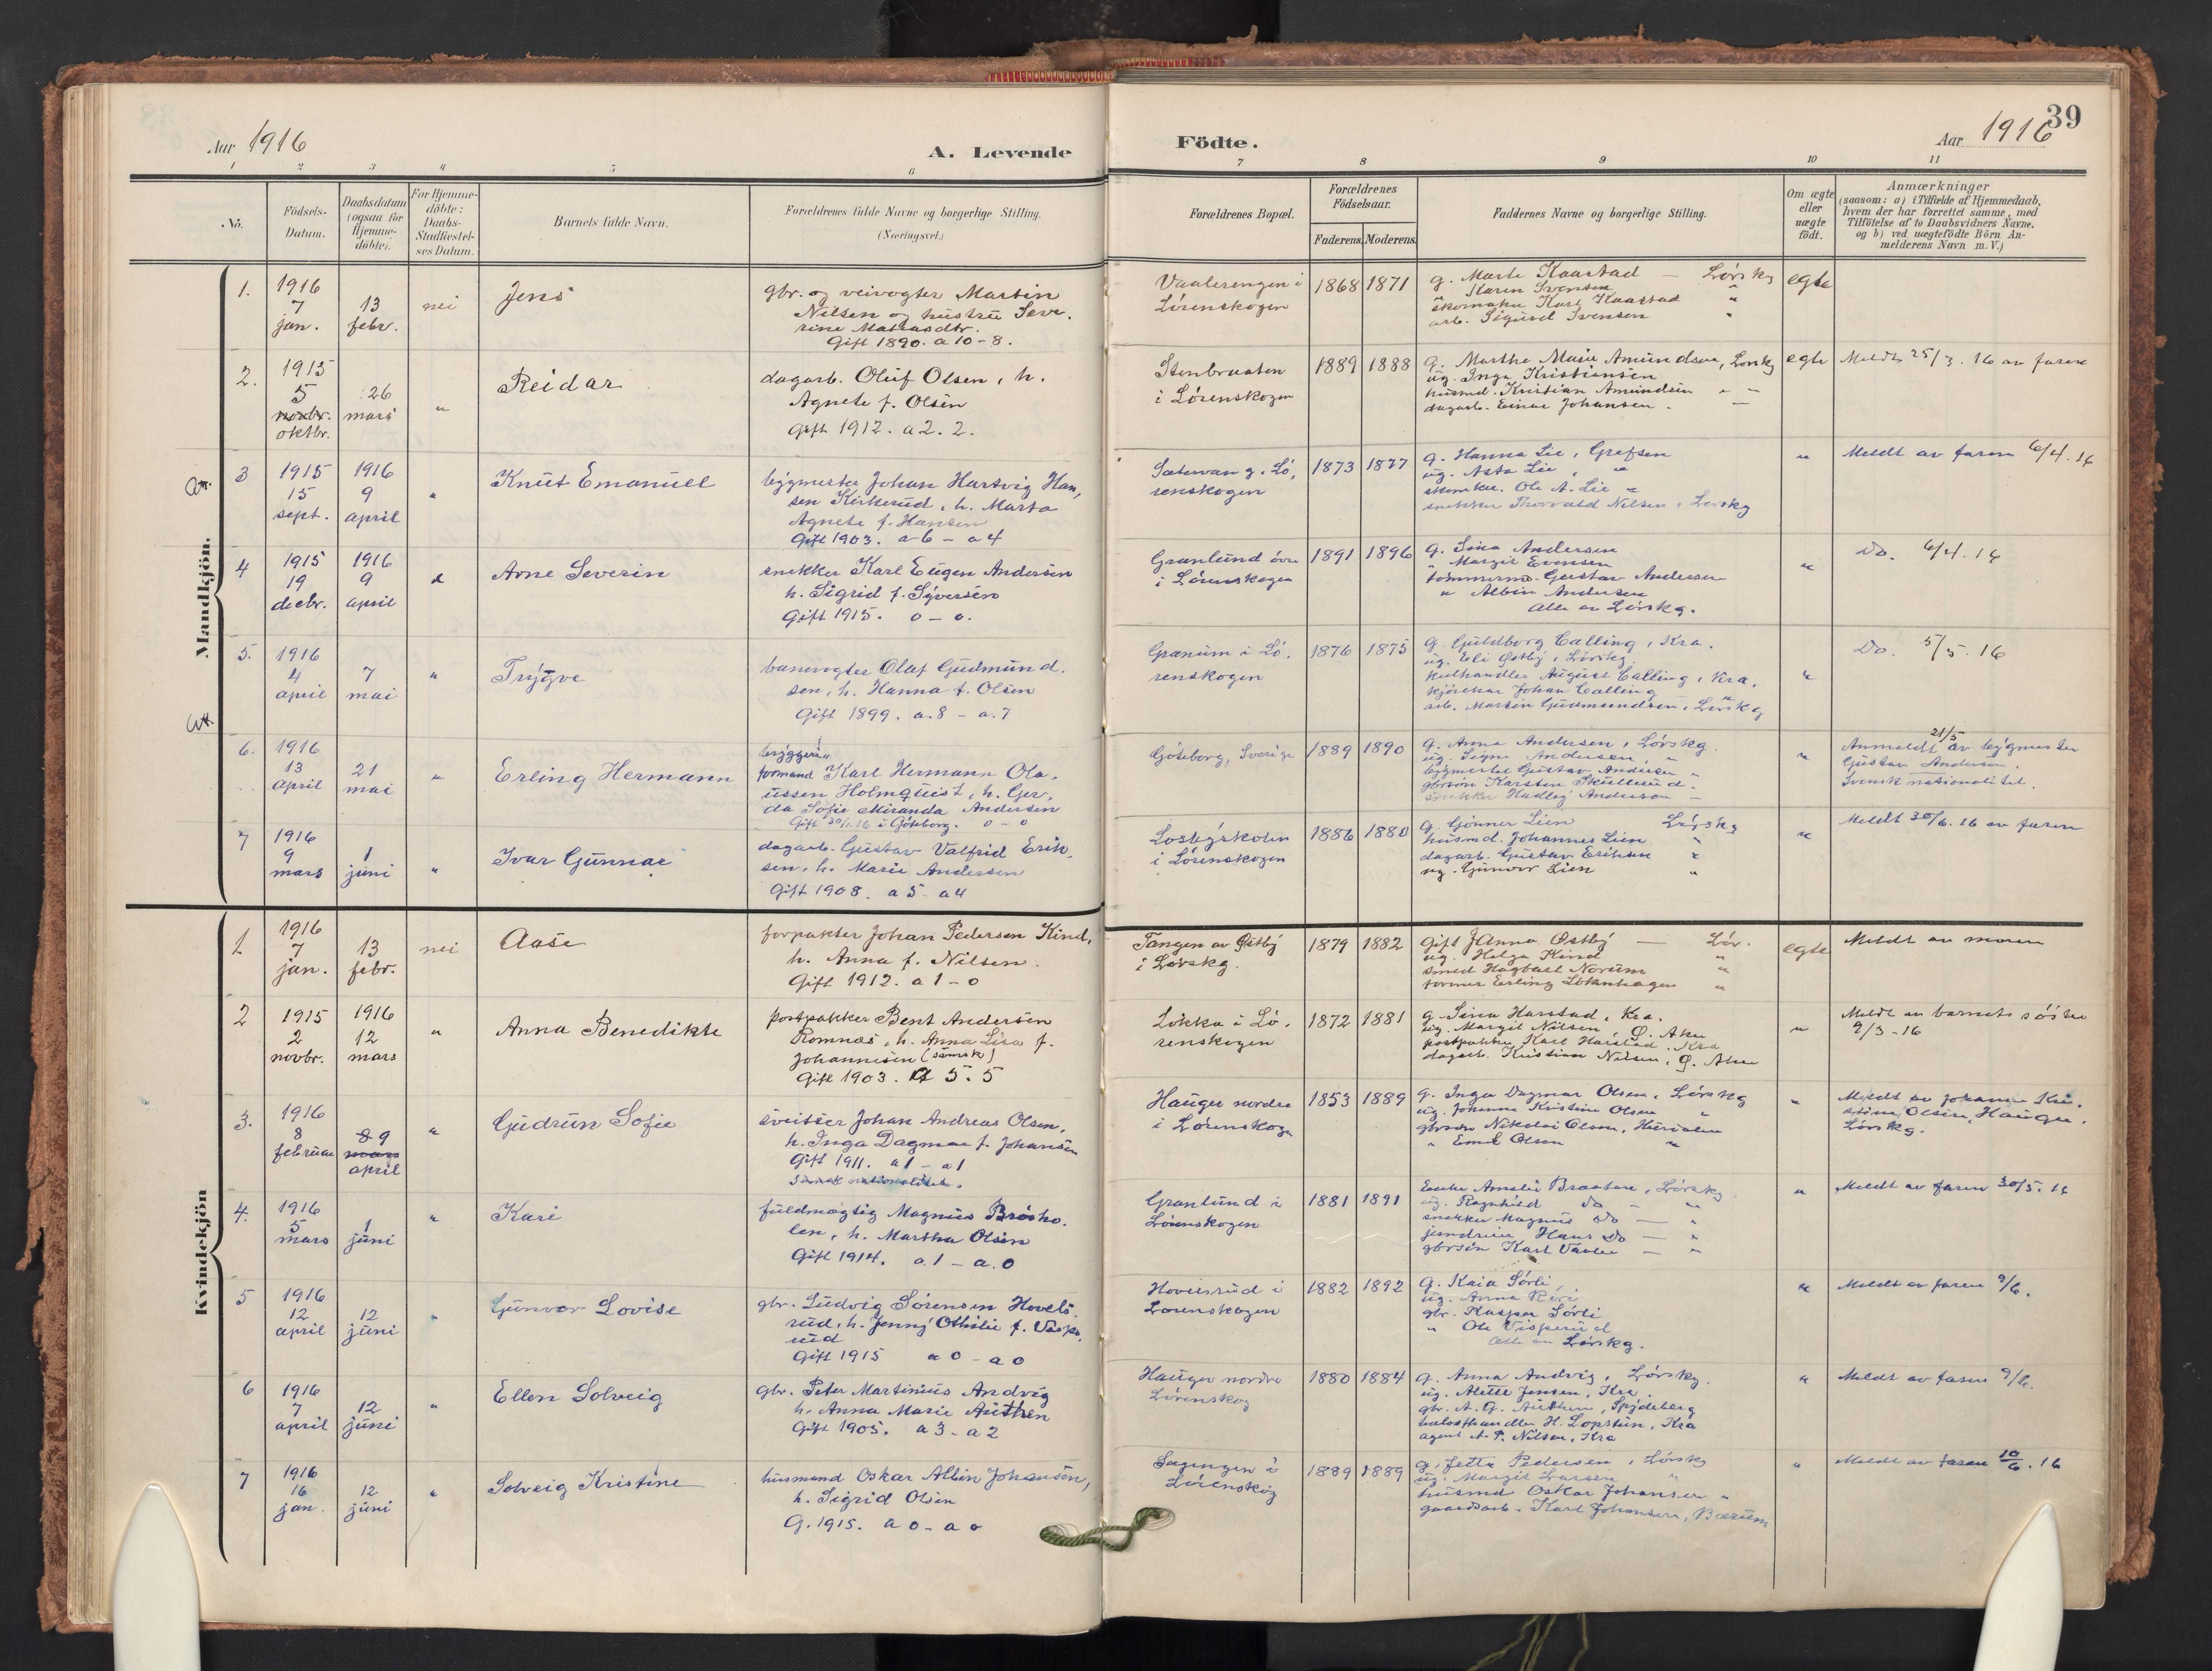 39
Aar 1916
A. Levende
Födte.
Aar 1916
1 2 3 4 5 6 7 8 9 10 11
No.
Födsels-
Datum.
Daabsdatum
(ogsaa for
Hjemme-
döbte).
For Hjemme-
döbte:
Daabs-
Stadfæstel-
ses Datum.
Barnets fulde Navn.
Forældrenes fulde Navne og borgerlige Stilling.
(Næringsvei.)
Forældrenes Bopæl.
Forældrenes
Födselsaar.
Faderens. Moderens.
Faddernes Navne og borgerlige Stilling.
Om ægte
eller
uægte
födt.
Anmærkninger
(saasom: a) i Tilfælde af Hjemmedaab,
hvem der har forrettet samme, med
Tilföielse af to Daabsvidners Navne,
og b) ved uægtefödte Börn An-
melderens Navn m. V.)
Mandkjön.
1.
1916
7
jan.
13
febr.
nei
Jens
gbr. og veivogter Martin
Nilsen og hustru Seve-
rine Matiasdtr.
Gift 1890. a 10 - 8.
Vaalerengen i
Lörenskogen
1868 1871
g. Marte Kaarstad — Lörskg
" Karen Svensen "
skomaker Karl Kaarstad "
arb. Sigurd Svensen "
egte
2.
1915
5
novbr.
oktbr.
26
mars
"
Reidar
dagarb. Oluf Olsen, h.
Agnete f. Olsen
Gift 1912. a 2. 2.
Stenbraaten
i Lörenskogen
1889 1888
g. Marthe Marie Amundsen, Lörskg
ug. Inga Kristiansen
husmd. Kristian Amundsen " —
dagarb. Einar Johansen. —
egte
Meldt 25/3. 16 av faren
3
1915
15
sept.
1916
9
april
"
Knut Emanuel
bygmester Johan Hartvig Han-
sen Kirkerud, h. Marta
Agnete f. Hansen
Gift 1903. a 6 - a 4
Sætervang. Lö-
renskogen
1873 1877
g. Hanna Lie, Grefsen
ug. Asta Lie, "
skomaker. Ole A. Lie "
snekker Thorvald Nilsen, Lörskg
"
Meldt av faren 6/4. 16
4
1915
19
decbr.
1916
9
april
"
Arne Severin
snekker Karl Eugen Andersen
h. Sigrid f. Syversen
Gift 1915. 0 - 0.
Granlund övre
i Lörenskogen
1891 1896
g. Sina Andersen
" Margit Evensen
tömmermd. Gustav Andersen
" Albin Andersen
Alle av Lörskg.
"
Do. 6/4. 16
5.
1916
4
april
7
mai
"
Trygve
banevogter Olaf Gudmund-
sen, h. Hanna f. Olsen
Gift 1899. a. 8 - a. 7
Granum i Lö-
renskogen
1876 1875
g. Guldborg Calling, Kra.
ug. Eli Østby, Lörskg
kulhandler August Calling, Kra.
kjörekar Johan Calling "
arb. Martin Gudmundsen, Lörskg
"
Do. 5/5. 16
6.
1916
13
april
21
mai
"
Erling Hermann
bryggeri-
formand Karl Hermann Ola-
ussen Holmquist, h. Ger-
da Sofie Miranda Andersen
Gift 30/1.16 i Göteborg. 0 - 0
Göteborg, Sverige
1889 1890
g. Anna Andersen, Lörskg.
ug. Signe Andersen "
bygmester Gustav Andersen "
gbrsön Karsten Skullerud -
snekker Hadley Anderson -
"
21/5
Anmeldt av bygmester
Gustav Andersen.
Svensk nationalitet.
7
1916
9
mars
1
juni
"
Ivar Gunnar
dagarb. Gustav Valfrid Erik-
sen, h. Marie Andersen
Gift 1908. a 5 - a 4
Losbyskolen
i Lörenskogen
1886 1880
g. Gönner Lien Lörskg
husmd. Johannes Lien "
dagarb. Gustav Eriksen "
ug. Gunvor Lien "
"
Meldt 30/6. 16 av faren
Kvindekjön
1
1916
7
jan.
13
febr.
nei
Aase
forpakter Johan Pedersen Kind,
h. Anna f. Nilsen.
Gift 1912. a 1 - 0
Tangen av Østby
i Lörskg.
1879 1882
Gift Anna Østby — Lör.
ug. Helga Kind "
smed Hagbart Norum "
former Erling Lökenhagen "
egte
Meldt av moren
2
1915
2
novbr.
1916
12
mars
"
Anna Benedikte
postpakker Bent Andersen
Romnæs, h. Anna Lisa f.
Johannesen (svensk)
Gift 1903. a 5. 5
Lökka i Lö-
renskogen
1872 1881
g. Sina Harstad, Kra.
ug. Margit Nilsen, Ø. Aker
postpakker Karl Harstad, Kra
dagarb. Kristian Nilsen, Ø. Aker
"
Meldt av barnets söster
9/3 - 16
3.
1916
8
februar
8 9
mars
april
"
Gudrun Sofie
sveitser Johan Andreas Olsen,
h. Inga Dagmar f. Johansen
Gift 1911. a 1 - a 1
Svensk nationalitet.
Hauger nordre
i Lörenskogen
1853 1889
g. Inga Dagmar Olsen, Lörskg
ug. Johanna Kristine Olsen "
gbrsön Nikolai Olsen,
" Emil Olsen "
"
Meldt av Johanne Kri-
stine Olsen, Hauger,
Lörskg.
4.
1916
5
mars
1
juni
"
Kari
fuldmægtig Magnus Bråsko-
len, h. Martha Olsen
Gift 1914. a. 1 - a. 0
Granlund i
Lörenskogen
1881 1891
Enke Amalie Braaten, Lörskg
ug. Ragnhild do - "
snekker Magnus do — "
jerndreier Hans Do — "
gbrsön Karl — "
"
Meldt av faren 30/5. 16
5
1916
12
april
12
juni
"
Gunvor Lovise
gbr. Ludvig Sörensen Hovels-
rud, h. Jenny Othilie f. Vispe-
rud
Gift 1915 a 0 - a 0
Hovelsrud i
Lörenskogen
1882 1892
g. Kaia Sörli,
ug. Anna
gbr. Kasper Sörli
" Ole Visperud
alle av Lörskg.
"
Meldt av faren 9/6.
6
1916
7
april
12
juni
"
Ellen Solveig
gbr. Peter Martinius Andvig
h. Anna Marie Authen
Gift 1905. a 3 - a 2
Hauger nordre
Lörenskog
1880 1884
g. Anna Andvig, Lörskg.
ug. Alette Jensen, Kra.
gbr. A. G. Authen, Spydeberg
H. Lopstun, Kra
agent A. P. Nilsen, Kra
"
Meldt av faren 9/6.
7
1916
16
jan.
12
juni
"
Solveig Kristine
husmand Oskar Albin Johansen,
h. Sigrid Olsen
G. 1915. a 0 - a 0
Sagengen i
Lörenskog
1889 1889
g. Jette Pedersen, Lörskg
ug. Margit Larsen "
husmd Oskar Johansen "
gaardsarb. Karl Johansen, Bærum
"
Meldt av faren 10/6. 16